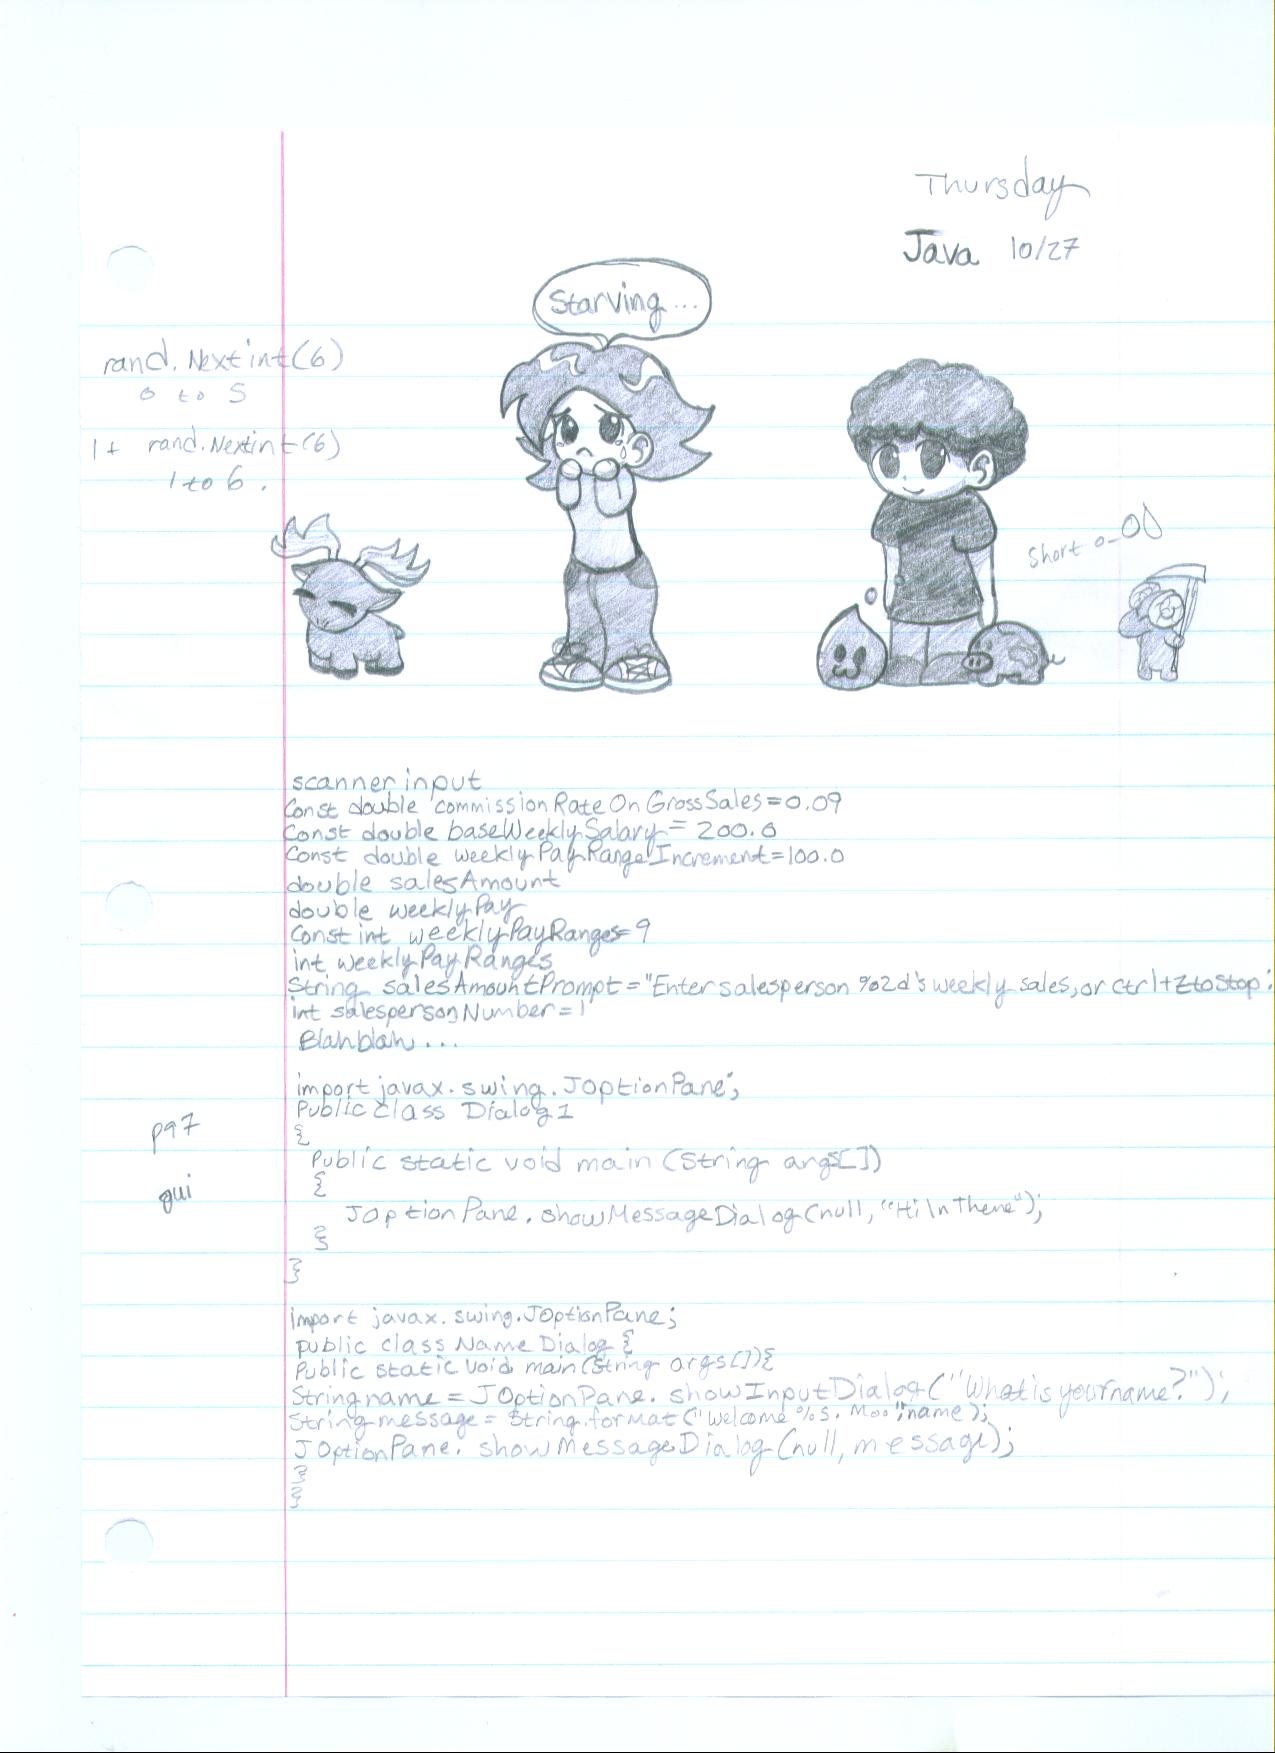 Thursday
Java 10/27
Starving...
rand.Nextint(6)
0 to 5
1+ rand.Nextint(6)
1 to 6.
Short
scanner input
Const double commissionRateOnGrossSales=0.09
Const double baseWeeklySalary=200.0
Const double weeklyPayRangeIncrement=100.0
double salesAmount
double weeklyPay
Const int weeklyPayRanges=9
int weeklyPayRanges
String salesAmountPrompt="Enter salesperson %2d's weekly sales, or ctrl+Z to stop:
int salespersonNumber=1
Blah blah...
import javax.swing.JOptionPane;
Public class Dialog1
{
Public static void main (String args[])
{
JOptionPane.showMessageDialog(null,"Hi\nThere");
}
}
pg7
gui
import javax.swing.JOptionPane;
public class NameDialog {
Public static void main(String args[]){
String name = JOptionPane.showInputDialog("What is your name?");
String message = String.format("Welcome %s. Moo",name);
JOptionPane.showMessageDialog(null,message);
}
}